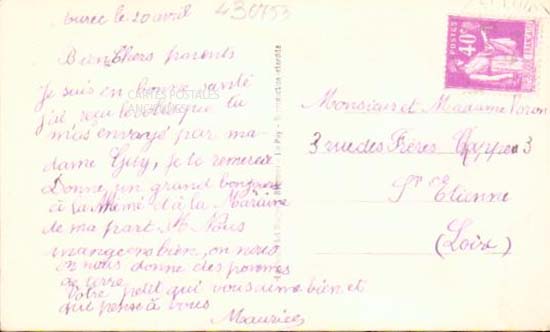 le 20 avril
430753
Bien Chers parents
Je suis en bonne santé
CARTES POSTALES
j'ai reçu le colis que tu
m'as envoyé par ma-
dame Guy, je te remercie
Donne un grand bonjour
à la Mémé et à la Marraine
de ma part M. Nous
mangeons bien, on nous
donne des pommes
de terre
Votre petit qui vous aime bien et
qui pense à vous
Maurice
POSTES
40c
Monsieur et Madame Voron
3 rue des Frères 3
St Etienne
(Loire)